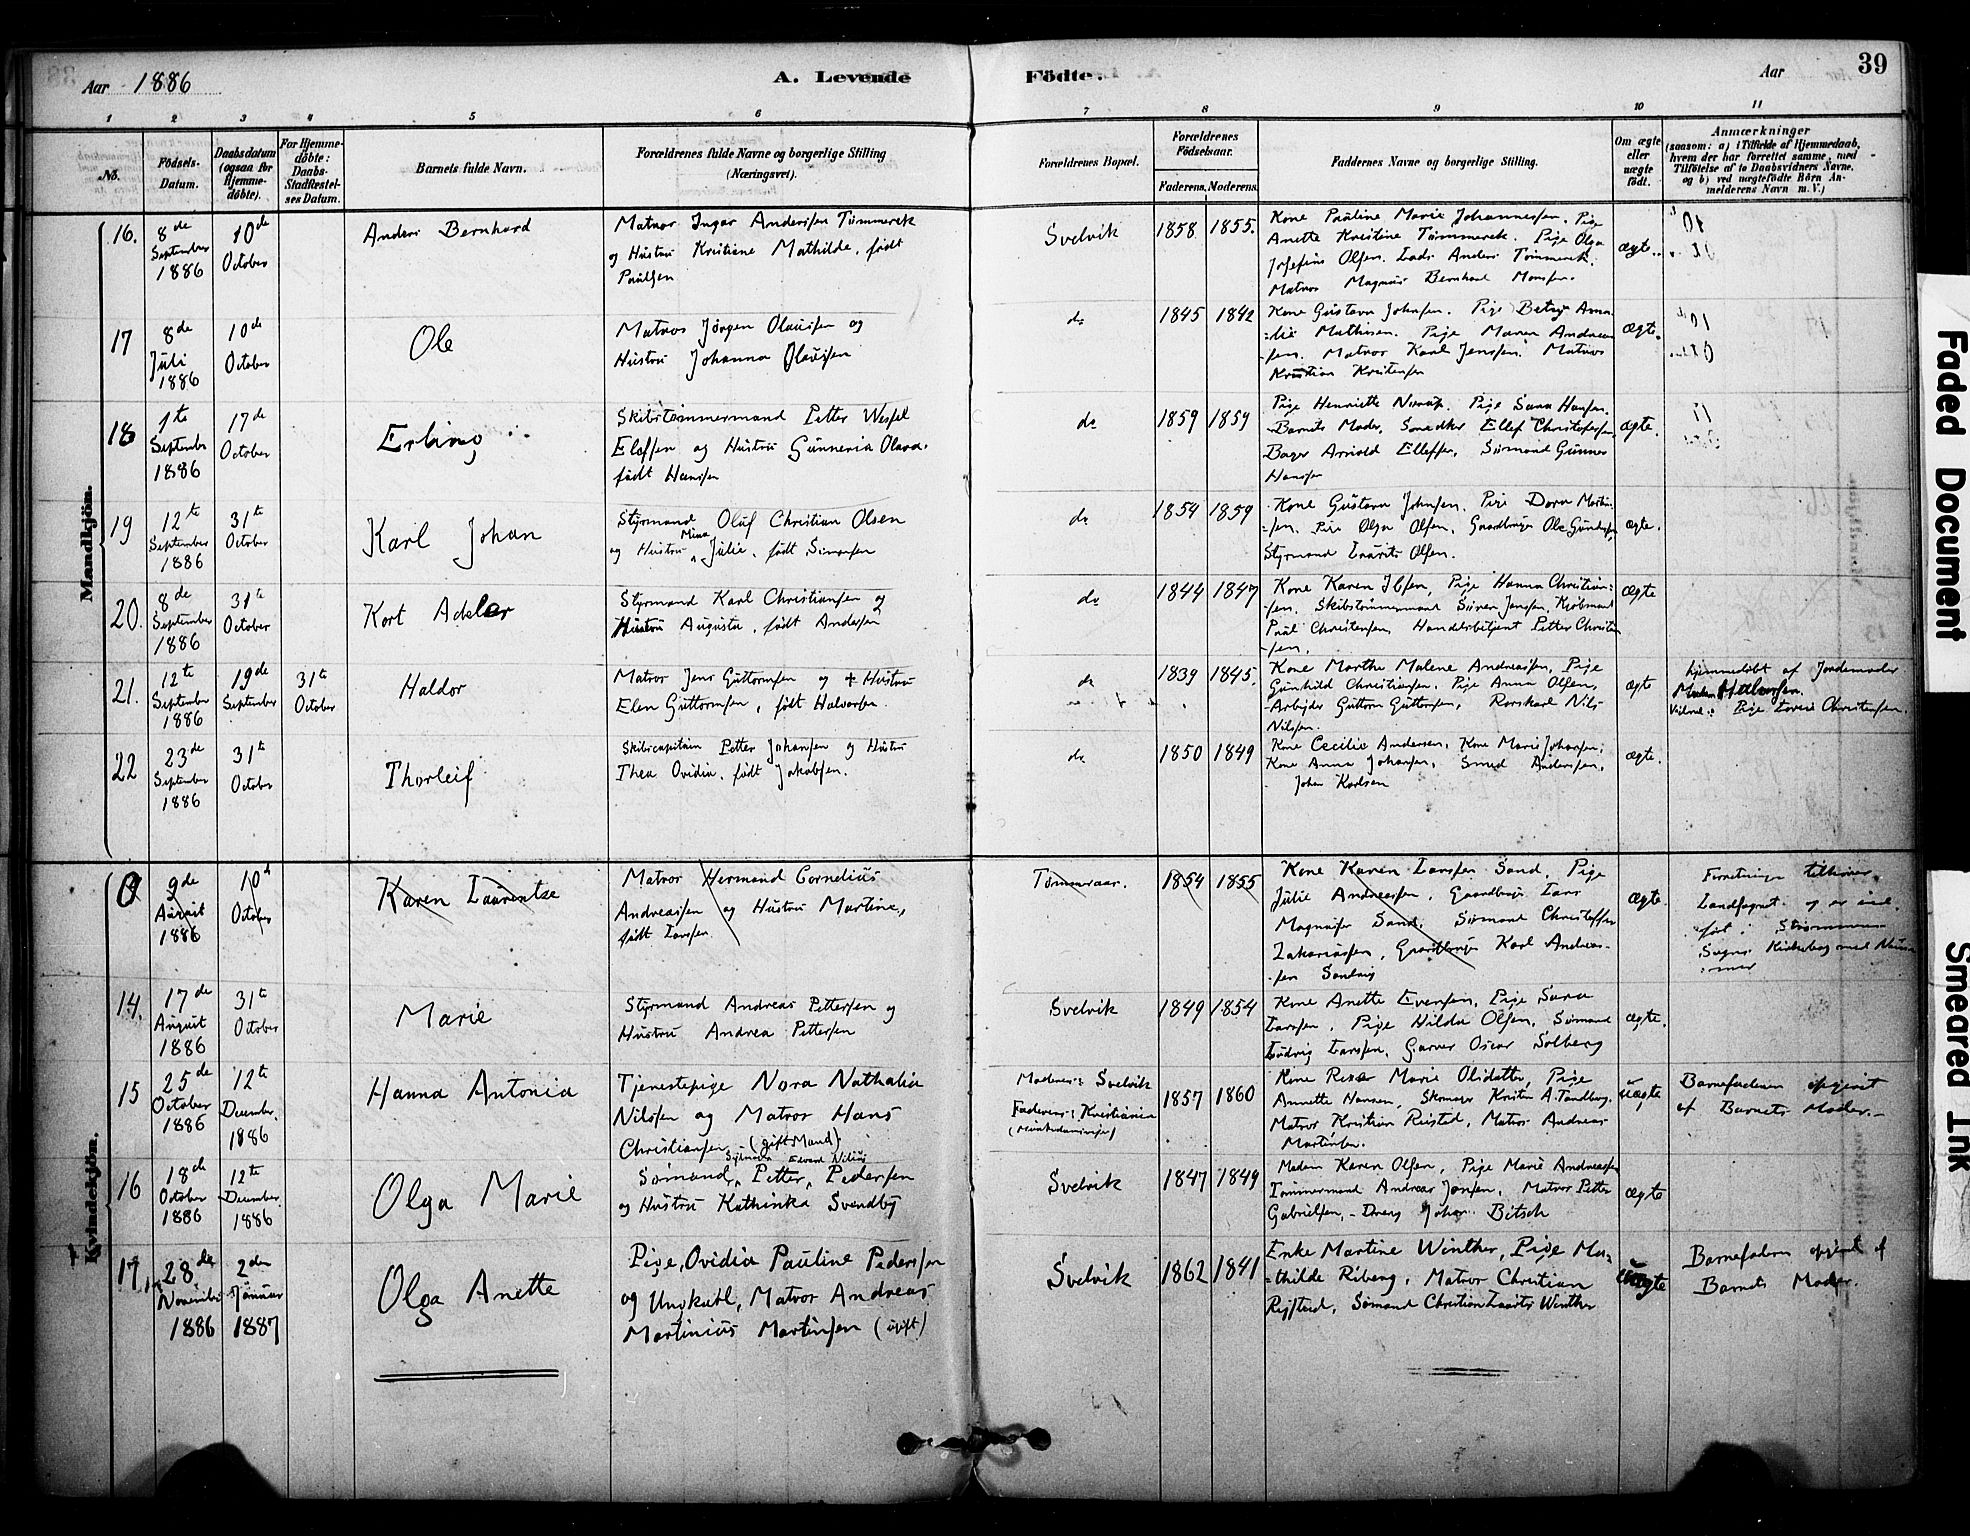 Aar 1886
A. Levende Födte.
Aar
39
1 2 3 4 5 6 7 8 9 10 11
No.
Födsels-Datum.
Daabsdatum (ogsaa for Hjemmedöbte).
For Hjemmedöbte: Daabs-Stadfæstelses Datum.
Barnets fulde Navn.
Forældrenes fulde Navne og borgerlige Stilling (Næringsvei).
Forældrenes Bopæl.
Forældrenes Födselsaar.
Faderens. Moderens.
Faddernes Navne og borgerlige Stilling.
Om ægte eller uægte födt.
Anmærkninger
(saasom: a) i Tilfælde af Hjemmedaab, hvem der har forrettet samme, med Tilföielse af to Daabsvidners Navne, og b) ved uægtefödte Börn Anmelderens Navn m. V.)
Mandkjön.
16. 8de September 1886 10de October
Anders Bernhard
Matros Ingar Anderssen Tömmerek
og Hustru Kristiane Mathilde, født
Paulsen
Svelvik 1858 1855.
Kone Pauline Marie Johannessen, Pige
Anette Kristine Tömmerek. Pige Olga
Josefine Olsen. Lods Anders Tömmerek.
Matros Magnus Bernhard Monsen.
ægte.
17 8de Juli 1886 10de October
Ole
Matros Jörgen Olaussen og
Hustru Johanna Olaussen
do 1845 1842
Kone Gustava Johnsen. Pige Betsy Ama-
lie Mathisen. Pige Maren Andreas-
sen. Matros Karl Jenssen. Matros
Kristian Kristensen
ægte.
18 1te September 1886 17de October
Erling
Skibstömmermand Petter Wessel
Eleffsen og Hustru Gunneria Olava.
født Hanssen
do 1859 1859
Pige Henriette Nærup. Pige Sara Hansen.
Barnets Moder, Snedker Ellef Christofersen,
Bager Arnold Elleffsen, Sömand Gunner
Hansen
ægte.
19 12te September 1886 31te October
Karl Johan
Styrmand Oluf Christian Olsen
og Hustru Mina Julie, født Simonsen
do 1854 1859
Kone Gustava Johnsen. Pige Dora Martin-
sen. Pige Olga Olsen, Gaardbruger Ole Gundersen,
Styrmand Laurits Olsen.
ægte.
20. 8de September 1886 31te October
Kort Adeler
Styrmand Karl Christiansen og
Hustru Augusta, født Andersen
do 1844 1847
Kone Karen Ibsen, Pige Hanna Christian-
sen. Skibstömmermand Sören Jensen, Kjöbmand
Paul Christensen, Handelsbetjent Petter Christen-
sen.
ægte
21. 12te September 1886 19de September 31te October
Haldor
Matros Jens Guttormsen og Hustru
Elen Guttormsen, født Halvorsen.
do 1839 1845.
Kone Marthe Malene Andreassen, Pige
Gunhild Christiansen. Pige Anna Olsen,
Arbeider Guttorm Guttormsen, Rorskarl Nils
Nilssen.
ægte
hjemmedøbt af Jordemoder
Halvorsen.
Vidne: Pige Lovise Christensen.
22 23de September 1886 31te October
Thorleif
Skibscapitain Petter Johansen og Hustru
Thea Ovidia, født Jakobsen.
do 1850 1849
Kone Cecilie Andersen, Kone Marie Johansen,
Kone Anna Johansen, Smed Anderssen,
Johan Karlsen
ægte.
Kvindekjön.
0 9de August 1886 10d October
Karen Laurentze
Matros Hermand Cornelius
Andreassen og Hustru Martine,
født Larssen.
Tömmeraas. 1854 1855
Kone Karen Larssen Sand, Pige
Julie Andreassen, Gaardbruger Lars
Magnussen Sand, Sömand Christoffer
Zakariassen, Gaardbruger Karl Andreas-
sen Sandvig
ægte.
Forretningen tilhører
Landsognet og er ind-
ført i Strömmens
Sogns Kirkebog med Num-
mer
14. 17de August 1886 31te October
Marie
Styrmand Andreas Pettersen og
Hustru Andrea Pettersen
Svelvik 1849 1854
Kone Anette Evensen, Pige Sara
Larssen, Pige Hilda Olsen, Sömand
Ludvig Larssen, Garver Oscar Solberg
ægte.
15 25de October 1886 12te December. 1886
Hanna Antonia
Tjenestepige Nora Nathalia
Nilssen og Matros Hans
Christiansen (gift Mand).
Moderens: Svelvik
Faderens: Kristiania
1857 1860
Kone Marie Olidatter, Pige
Annette Hansen, Skomager Kristen A. Tandberg,
Matros Kristian Reistad, Matros Andreas
Martinsen.
uægte
Barnefaderen opgivet
af Barnets Moder.
16 18de October 1886 12te December 1886
Olga Marie
Sömand, Petter Edvard Nilius Pedersen
og Hustru Kathinka Svendby
Svelvik 1847 1849
Madam Karen Olsen, Pige Marie Andreassen
Tömmermand Andreas Jansen, Matros Petter
Gabrielsen, Dreng Johan Bitsch
ægte
17. 28de November 1886 2den Januar 1887
Olga Anette
Pige, Ovidia Pauline Pedersen
og Ungkarl, Matros Andreas
Martinius Martinsen (ugift)
Svelvik 1862 1841
Enke Martine Winther, Pige Ma-
thilde Riberg, Matros Christian
Rejstad, Sömand Christian Laurits Winther
uægte
Barnefaderen opgivet af
Barnets Moder.
Faded Document
Smeared Ink